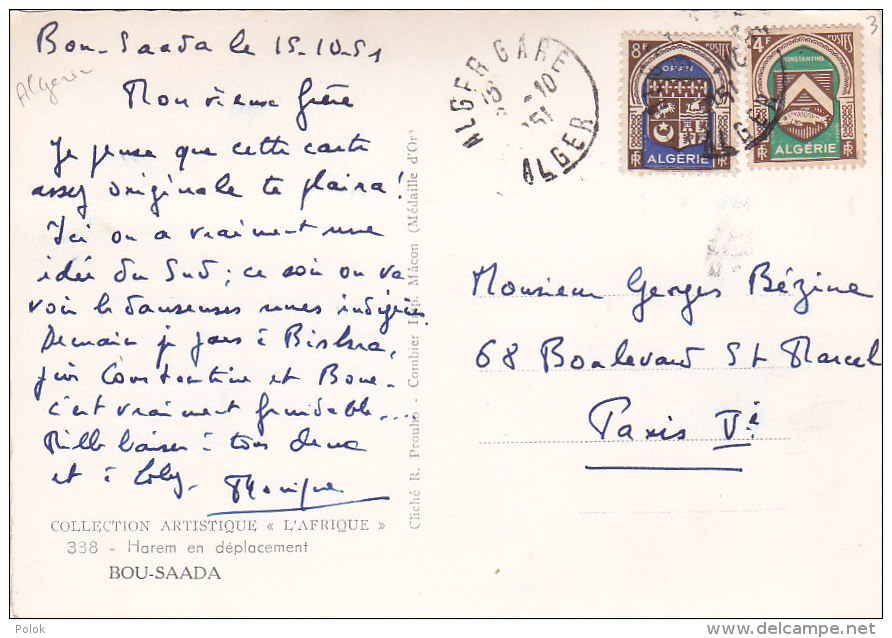 Bou-Saada le 15-10-51
Algérie
Mon vieux frère
Je pense que cette carte
assez originale te plaira !
Ici on a vraiment une
idée du Sud ; ce soir on va
voir les danseuses nues indigènes.
Demain je pars à Biskra,
puis Constantine et Bône -
c'est vraiment formidable....
Mille baisers à tous deux
et à
Monique
COLLECTION ARTISTIQUE « L'AFRIQUE »
338 - Harem en déplacement
BOU-SAADA
Cliché R. Prouho - Combier Imp. Mâcon (Médaille d'Or)
ALGER GARE
15 -10
51
ALGER
8F POSTES
ORAN
RF ALGÉRIE RF
4F POSTES
CONSTANTINE
RF ALGÉRIE RF
ALGER
3
Monsieur Georges Bézine
68 Boulevard St Marcel
Paris Vè
Polok
delcampe.net